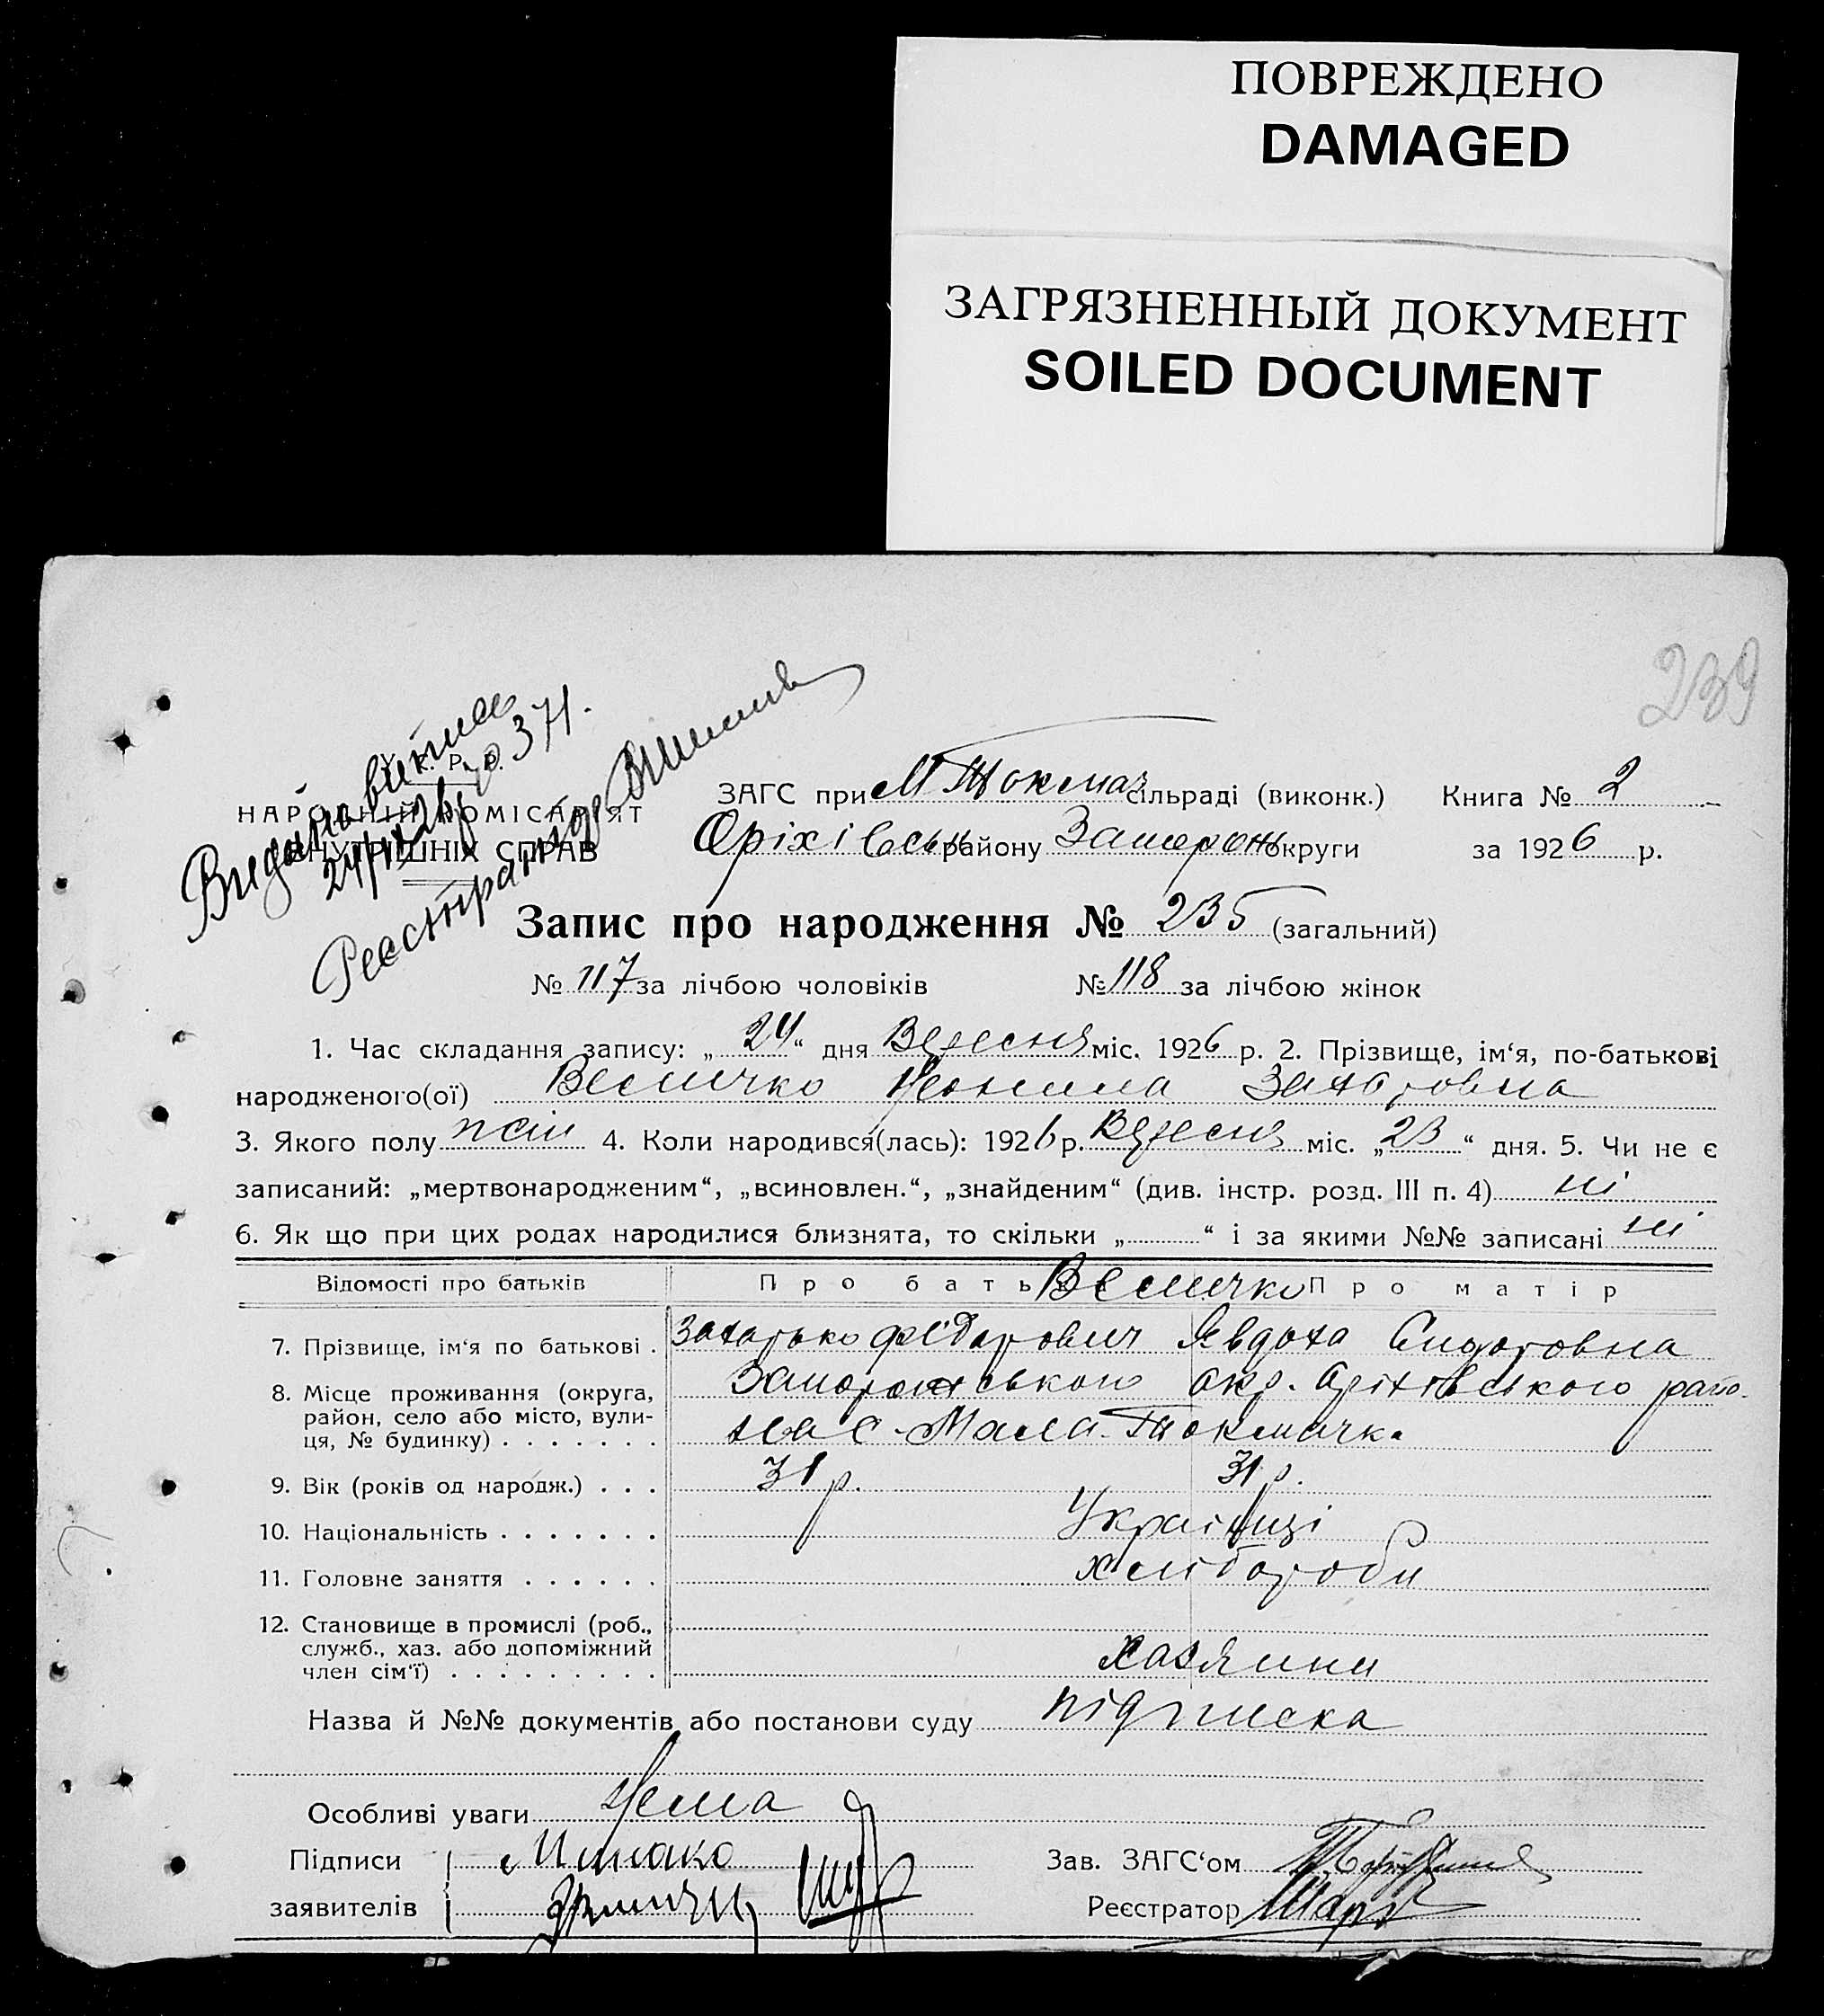 ПОВРЕЖДЕНО
DAMAGED
ЗАГРЯЗНЕННЫЙ ДОКУМЕНТ
SOILED DOCUMENT
239
У. С. Р. Р.
НАРОДНІЙ КОМІСАРІЯТ
ВНУТРІШНІХ СПРАВ
Видано витяг
24/IX 26 р № 371.
Реєстратор
ЗАГС при М Токмач сільраді (виконк.) Книга № 2
Оріхівськ району Запорож округи за 1926 р.
Запис про народження № 235 (загальний)
№ 117 за лічбою чоловіків № 118 за лічбою жінок
1. Час складання запису: „ 24 “ дня Вересня міс. 1926 р. 2. Прізвище, ім‘я, по-батькові
народженого(ої) Величко Неонила Захаровна
3. Якого полу жін 4. Коли народився(лась): 1926 р. Вересня міс. „ 23 “ дня. 5. Чи не є
записаний: „мертвонародженим“, „всиновлен.“, „знайденим“ (див. інстр. розд. III п. 4) ні
6. Як що при цих родах народилися близнята, то скільки „ “ і за якими №№ записані ні
Відомості про батьків Про батька Величко Про матір
7. Прізвище, ім‘я по батькові . Захарько Федорович Явдоха Сидоровна
8. Місце проживання (округа, Запорожського окр. Оріхівського райо-
район, село або місто, вули-
ця, № будинку) . . . . . . . на с. Мала-Токмачка
9. Вік (років од народж.) . . . 31 р. 31 р.
10. Національність . . . . . . . Українці
11. Головне заняття . . . . . . Хлібороби
12. Становище в промислі (роб.,
служб., хаз. або допоміжний
член сім‘ї) . . . . . . . . . Хазяини
Назва й №№ документів або постанови суду підписка
Особливі уваги Нема
Підписи
Зав. ЗАГС‘ом
заявителів
Реєстратор